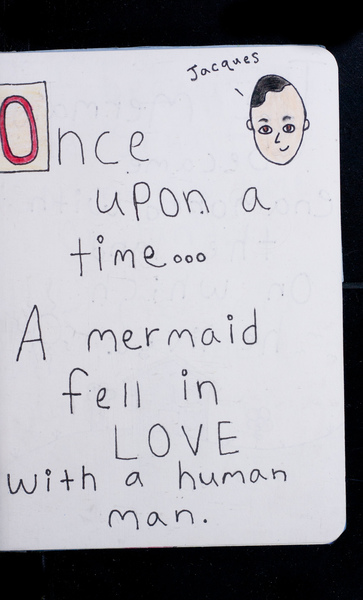 Jacques
Once
upon a
time...
A mermaid
fell in
LOVE
with a human
man.